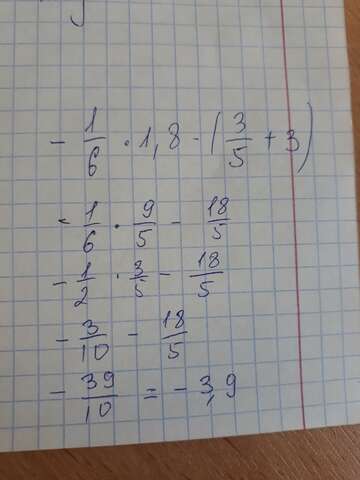 - 1/6 · 1,8 - (3/5 + 3)
- 1/6 · 9/5 - 18/5
- 1/2 · 3/5 - 18/5
- 3/10 - 18/5
- 39/10 = - 3,9